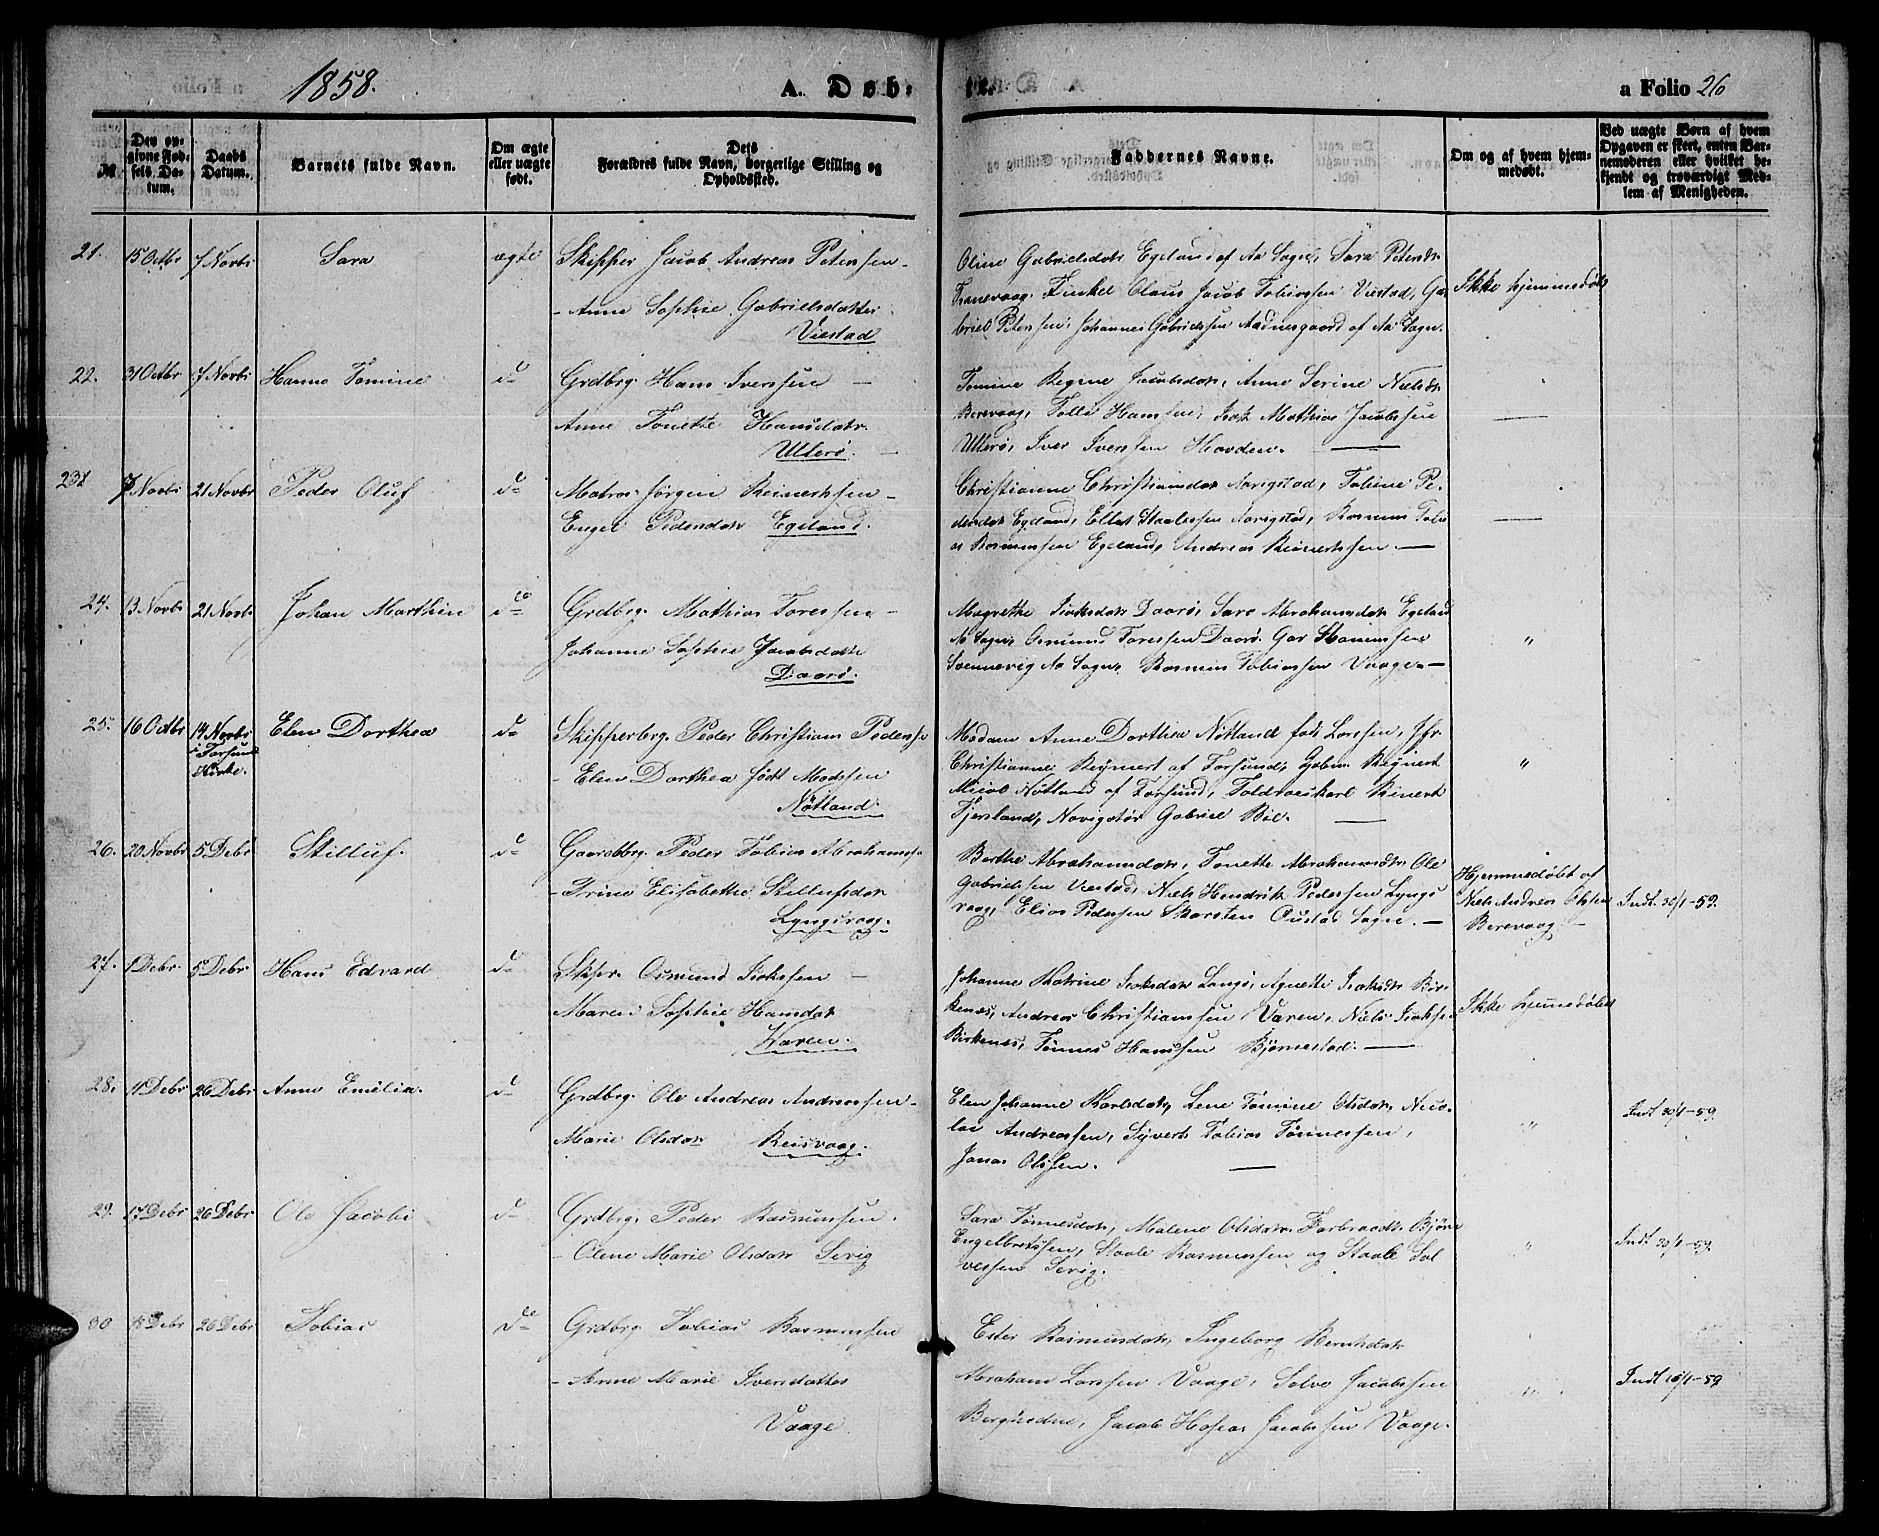 1858.
A. Døb-
te.
a Folio 26
№
Den op-
givne Fød-
sels Da-
tum.
Daabs
Datum.
Barnets fulde Navn.
Om ægte
eller uægte
født.
Dets
Forældres fulde Navn, borgerlige Stilling og
Opholdssted.
Faddernes Navne.
Om og af hvem hjem-
medøbt.
Ved uægte Børn af hvem
Opgaven er skeet, enten Bar-
nemoderen eller hvilket be-
kjendt og troværdigt Med-
lem af Menigheden.
21. 15 Octbr 7 Novbr Sara ægte Skipper Jacob Andreas Petersen -
- Anne Sophie Gabrielsdatter
Viestad
Oline Gabrielsdatr Egeland af Aa Sogn, Sara Petersdr
Tranevaag. Claus Jacob Tobiassen Viestad, Ga-
briel Petersen, Johannes Gabrielssen Aadnesgaard af Aa Sogn.
Ikke hjemmedøbt
22. 31 Octbr 7 Novbr Hanna Tomine do Grdbrg. Hans Iverssen -
Anne Tonette Hansdatr.
Ullerø. -
Tomine Regine Jacobsdatr, Anne Serine Nielsdr
Berevaag, Hanssen, Isak Mathias Jacobssen
Ullerø, Iver Iverssen Hovden. -
23. 7 Novbr 21 Novbr Peder Oluf do Matros Jørgen Reinertssen -
Engel Pedersdatr Egeland.
Christianne Christiansdatr Navigstad, Tobine Pe-
dersdatr Egeland, Staalessen Navigstad, Rasmus Tobi-
as Rasmussen Egeland, Andreas Reinertssen. -
24. 13 Novbr 21 Novbr Johan Marthin do Grdbrg. Mathias Toressen -
Johanne Sophie Jacobsdatr
Daarø.
Magrethe Isaksdatr Daarø, Sara Abrahamsdatr Egeland
Aa Sogn, Osmund Toressen Daarø.
Svennevig Aa Sogn, Rasmus Tobiassen Vaage. -
"
25. 16 Octbr 14 Novbr
i Farsund
Kirke.
Elen Dorthea do Skipperbrg. Peder Christian Pederse
- Elen Dorthea født Madssen
Nøtland.
Madam Anne Dorthea Nøtland født Larssen, Jfr.
Christianne Reynert af Farsund, Gabr. Reynert
Nøtland af Farsund, Toldroeskarl Reinert
Fjersland, Navigatør Gabriel Bøe. -
"
26. 20 Novbr 5 Debr Stilluf. do Gaardbrg. Peder Tobias Abrahamss.
- Trine Elisabethe Stillufsdatr
Lyngsvaag.
Berthe Abrahamsdatr, Tonette Abrahamsdr Ole
Gabrielssen Viestad, Niels Hendrik Pederssen Lyngs
vaag, Elias Pederssen Skarsten Oustad Sogn. -
Hjemmedøbt af
Niels Andreas Olssen
Berevaag. -
Indt. 30/1-59.
27. 1 Debr. 5 Debr. Hans Edvard do Skpr. Osmund Isakssen -
Maren Sophie Hansdatr
Waren.
Johanne Katrine Isaksdatr Langø, Agnette Isaksdr Bir-
kenæs, Andreas Christianssen Varen, Niels Isakssen
Birkenæs, Tønnes Hanssen Bjørnestad. -
Ikke hjemmedøbt
28. 4 Debr 26 Debr Anne Emilia. do Grdbrg. Ole Andreas Andreassen -
Marie Olsdatr Reisvaag.
Elen Johanne Karlsdatr, Lene Tomine Olsdatr, Nico-
lai Andreassen, Syvert Tobias Tønnessen,
Jonas Olssen. -
"
Indt 30/1-59.
29. 17 Debr 26 Debr Ole Jacobi do Grdbrg. Peder Rasmussen.
- Olene Marie Olsdatr Sevig
Sara Tønnesdatr, Malene Olsdatr Farbraadt, Bjørn
Engelbretssen, Staale Rasmussen og Staale Sal
vessen Sevig.
"
Indt 30/1-59.
30 18 Debr 26 Debr Tobias do Grdbrg Tobias Rasmussen
- Anne Marie Iversdatter
Vaage
Ester Rasmusdatr, Ingeborg Berntsdatr
Abraham Larssen Vaage, Salve Jacobssen
Jacob Hoseas Jacobssen Vaage.
"
Indt 16/1-59